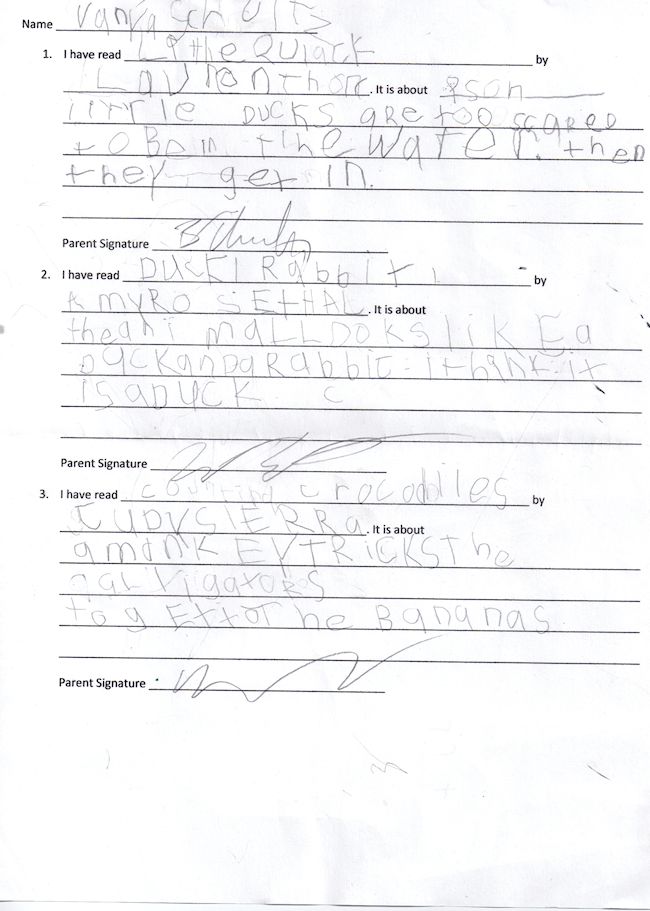 Name Vanya Schultz
1. I have read Little Quack by
Lauron thom. It is about
little DUCKS ARE too scared
to Be in the WATER. then
they get IN.
Parent Signature
2. I have read DUCK! RAbbit! by
AmyRO SEtHAL. It is about
the ani mALLOOKS LiKE a
DuckanDaRabbit. ithink it
iSaDUCK C
Parent Signature
3. I have read counting crocodiles by
JUDYSIERRa. It is about
a monKEYTRiCKSthe
togEttotheBananas
Parent Signature